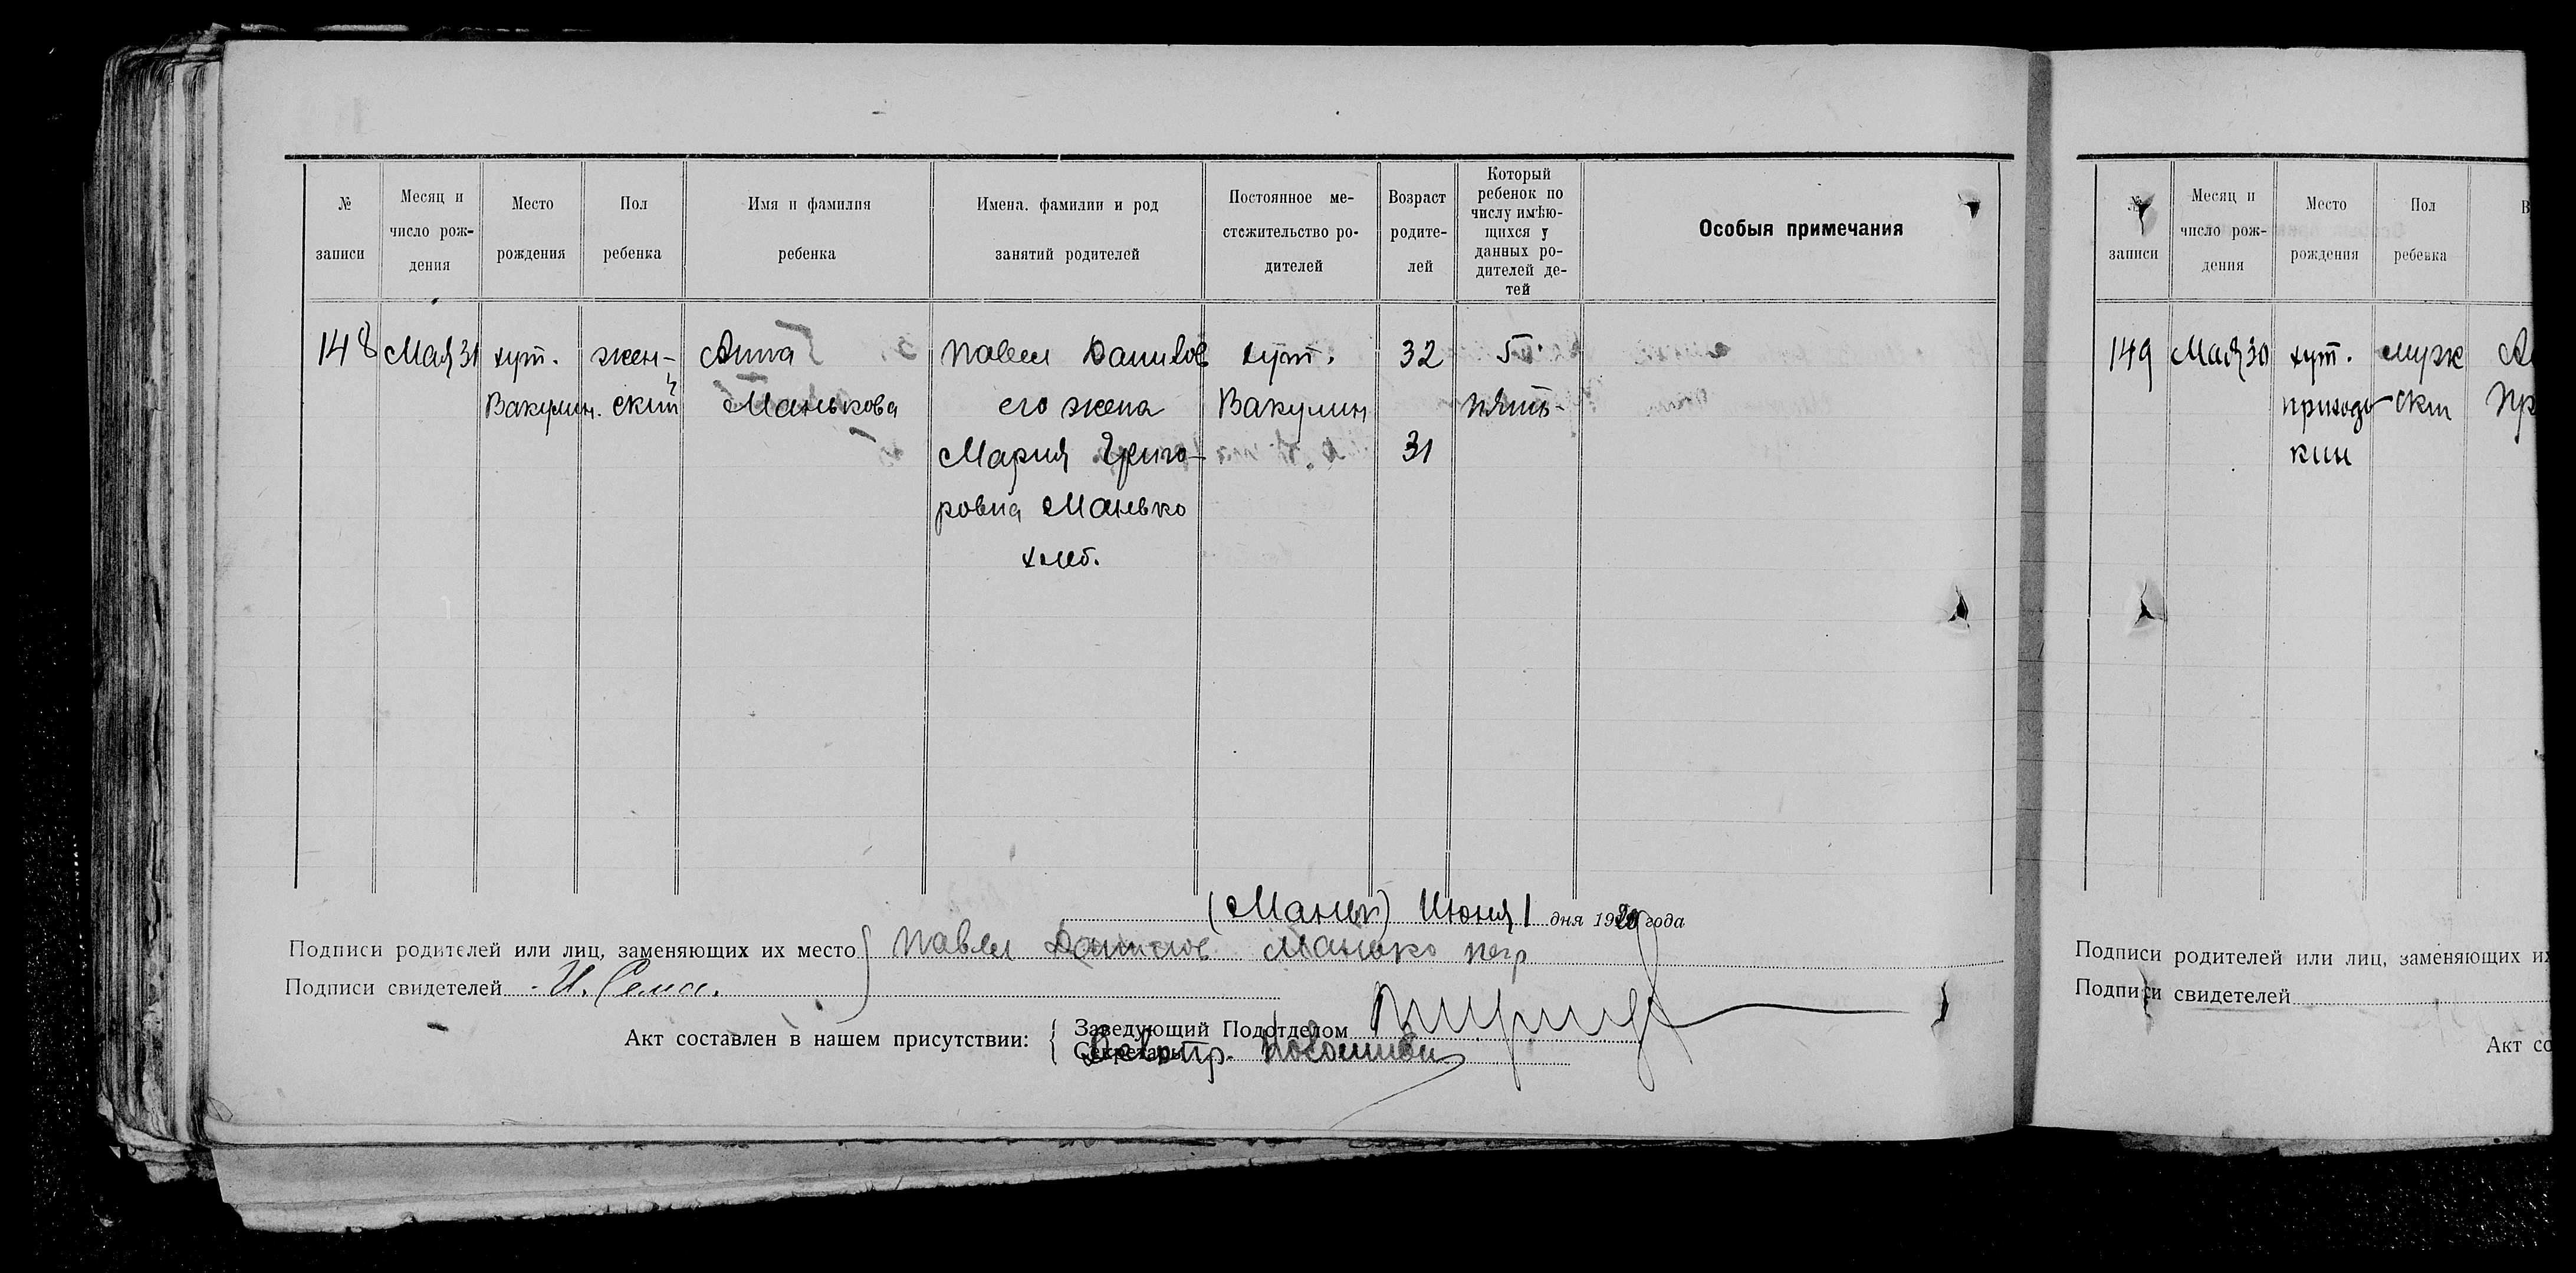 №
записи
Месяц и
число рож-
дения
Место
рождения
Пол
ребенка
Имя и фамилия
ребенка
Имена, фамилии и род
занятий родителей
Постоянное ме-
стожительство ро-
дителей
Возраст
родите-
лей
Который
ребенок по
числу имѣю-
щихся у
данных ро-
дителей де-
тей
Особыя примечания
148
Мая 31
хут.
Вакулин.
жен-
ский
Анна
Манькова
Павел Данилов
его жена
Мария Григо-
ровна Манько
хлеб.
хут.
Вакулин
32
31
5
пять
(Маньк) Июня 1 дня 1920 года
Подписи родителей или лиц, заменяющих их место Павел Данилов Манько
Подписи свидетелей
Акт составлен в нашем присутствии:
Заведующий Подотделом
Секретарь
№
записи
Месяц и
число рож-
дения
Место
рождения
Пол
ребенка
149
Мая 30
хут.
приходь-
кин
мужс
ски
Подписи родителей или лиц, заменяющих их
Подписи свидетелей
Акт со